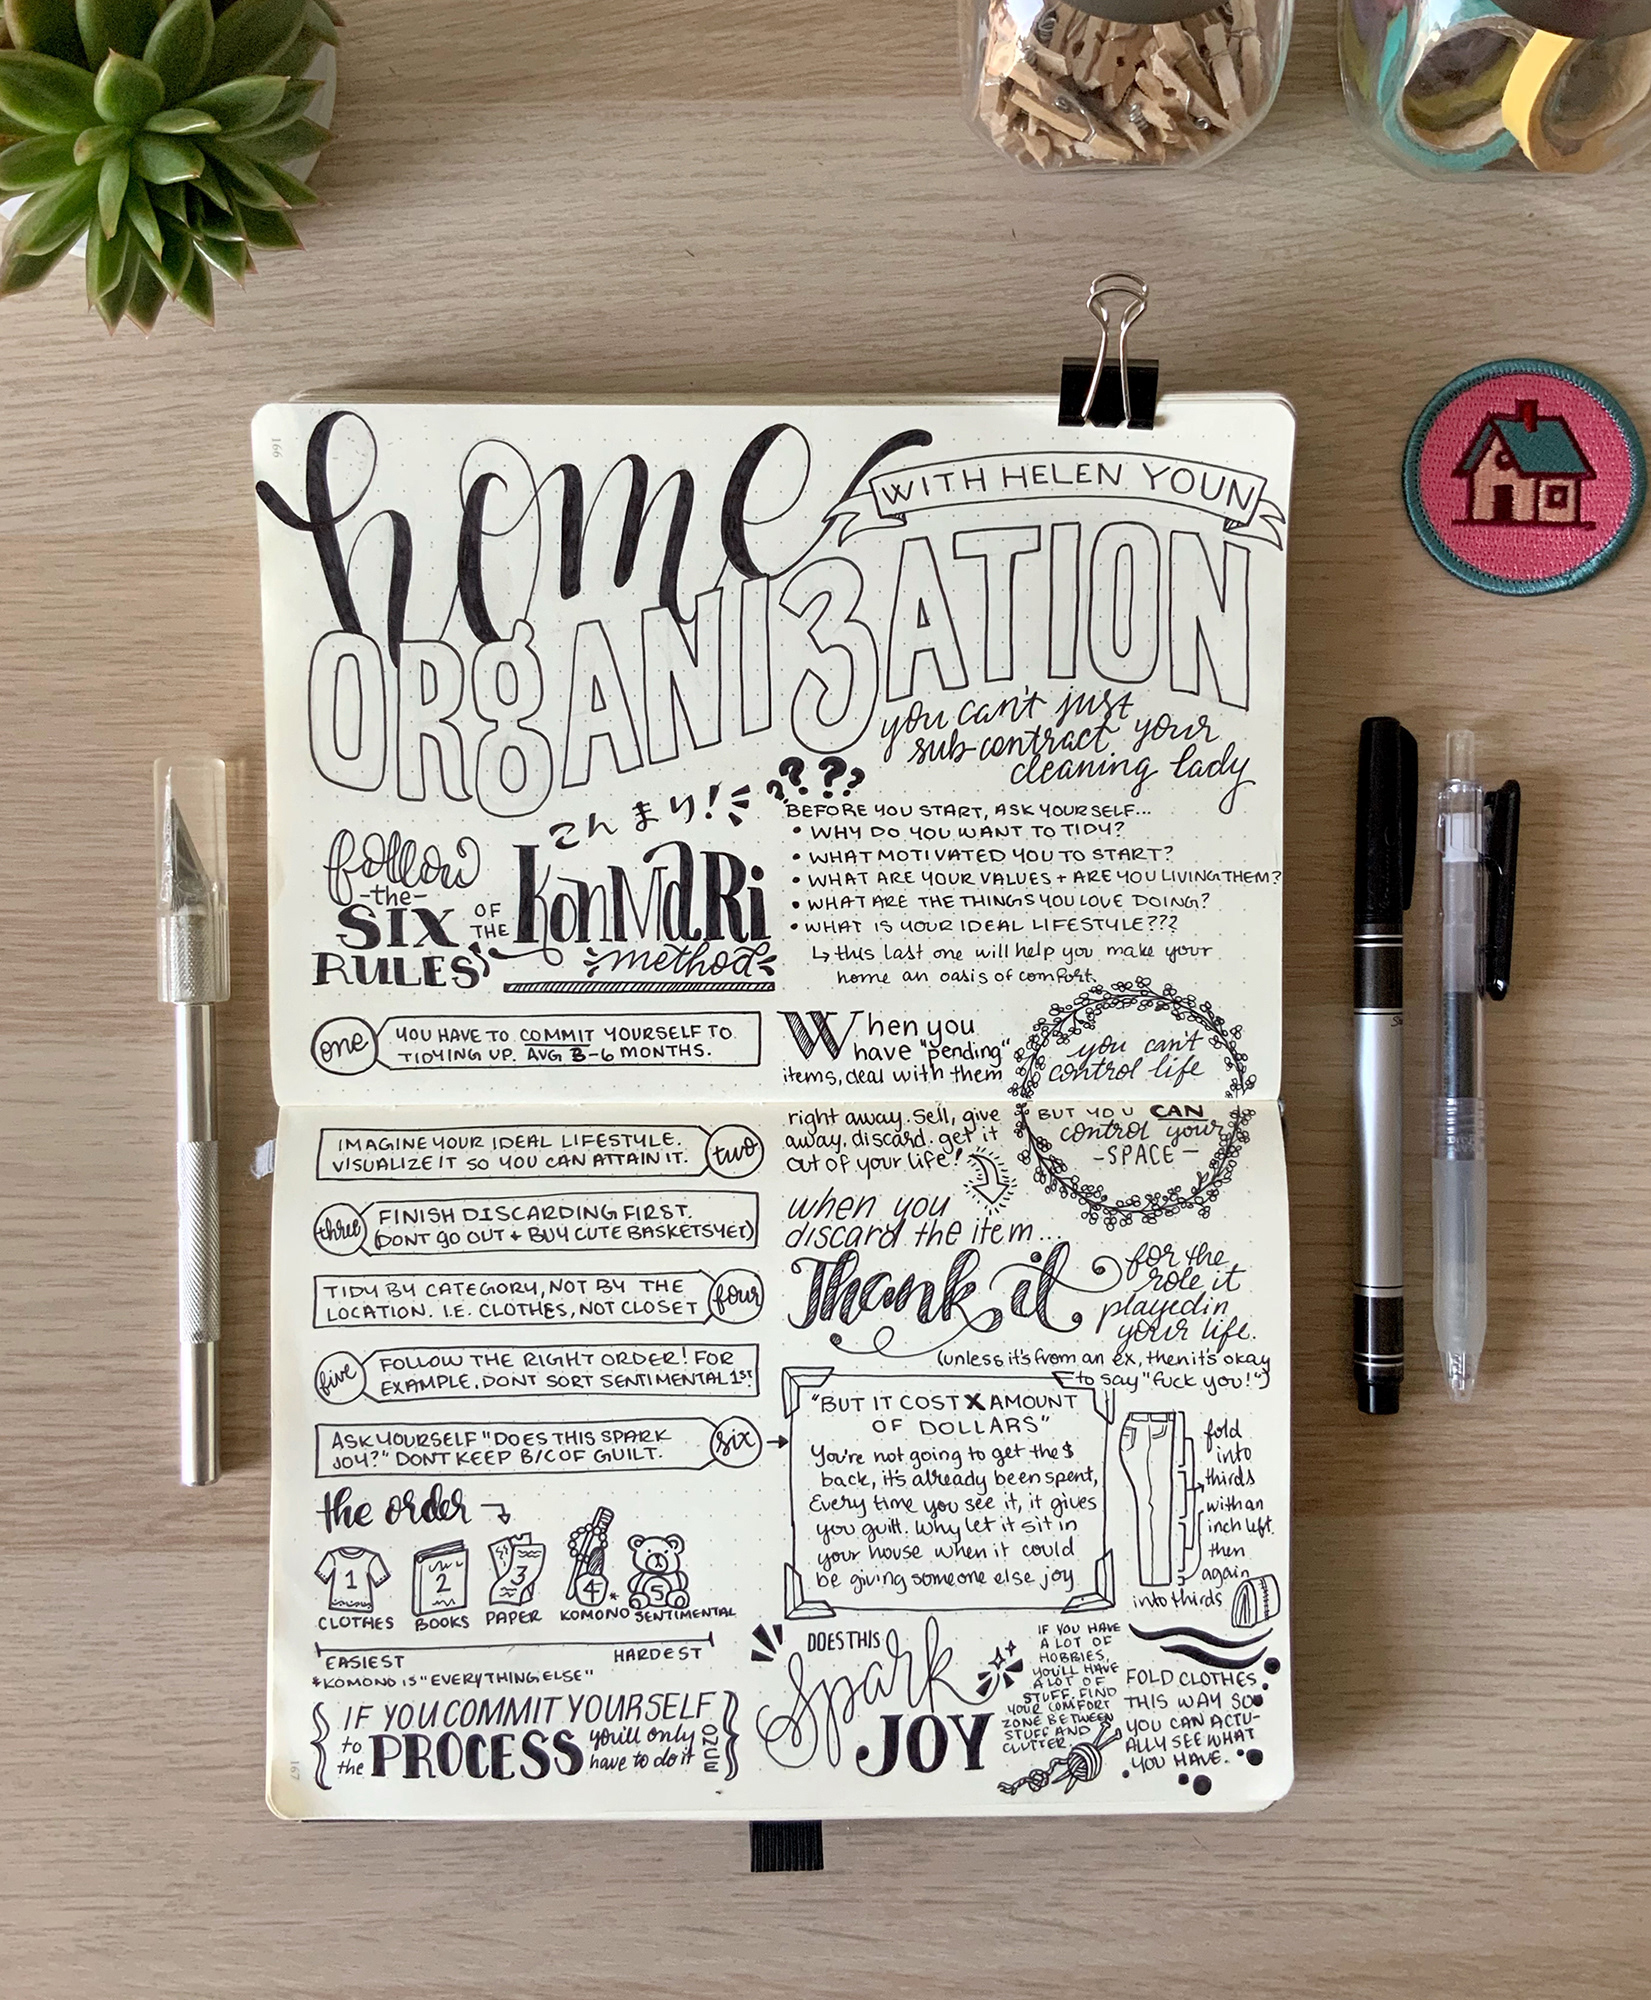 166
home
WITH HELEN YOUN
ORgANI3ATION
you can't just
sub-contract your
cleaning lady
こんまり!
follow
-the-
SIX
RULES
OF
THE
KonMaRi
method
????
BEFORE YOU START, ASK YOURSELF...
• WHY DO YOU WANT TO TIDY?
• WHAT MOTIVATED YOU TO START?
• WHAT ARE YOUR VALUES + ARE YOU LIVING THEM?
• WHAT ARE THE THINGS YOU LOVE DOING?
• WHAT IS YOUR IDEAL LIFESTYLE???
↳ this last one will help you make your
home an oasis of comfort.
one
YOU HAVE TO COMMIT YOURSELF TO
TIDYING UP. AVG 3-6 MONTHS.
IMAGINE YOUR IDEAL LIFESTYLE.
VISUALIZE IT SO YOU CAN ATTAIN IT.
two
three
FINISH DISCARDING FIRST.
(DONT GO OUT + BUY CUTE BASKETS YET)
TIDY BY CATEGORY, NOT BY THE
LOCATION. I.E. CLOTHES, NOT CLOSET
four
five
FOLLOW THE RIGHT ORDER! FOR
EXAMPLE, DONT SORT SENTIMENTAL 1ST.
ASK YOURSELF "DOES THIS SPARK
JOY?" DONT KEEP B/C OF GUILT.
six
the order
1 2 3 4* 5
CLOTHES BOOKS PAPER KOMONO SENTIMENTAL
EASIEST HARDEST
*KOMONO IS "EVERYTHING ELSE"
IF YOU COMMIT YOURSELF
to the PROCESS you'll only have to do it ONCE
167
When you
have "pending"
items, deal with them
right away. Sell, give
away, discard. get it
out of your life!
you can't
control life
BUT YOU CAN
control your
-SPACE-
when you
discard the item...
Thank it
for the
role it
played in
your life.
(unless it's from an ex, then it's okay
to say "fuck you!")
"BUT IT COST X AMOUNT
OF DOLLARS"
You're not going to get the $
back, it's already been spent,
Every time you see it, it gives
you guilt. Why let it sit in
your house when it could
be giving someone else joy
fold
into
thirds
with an
inch left.
then
again
into thirds
DOES THIS
Spark
JOY
IF YOU HAVE
A LOT OF
HOBBIES,
YOU'LL HAVE
A LOT OF
STUFF. FIND
YOUR COMFORT
ZONE BETWEEN
STUFF AND
CLUTTER.
FOLD CLOTHES
THIS WAY SO
YOU CAN ACTU-
ALLY SEE WHAT
YOU HAVE.